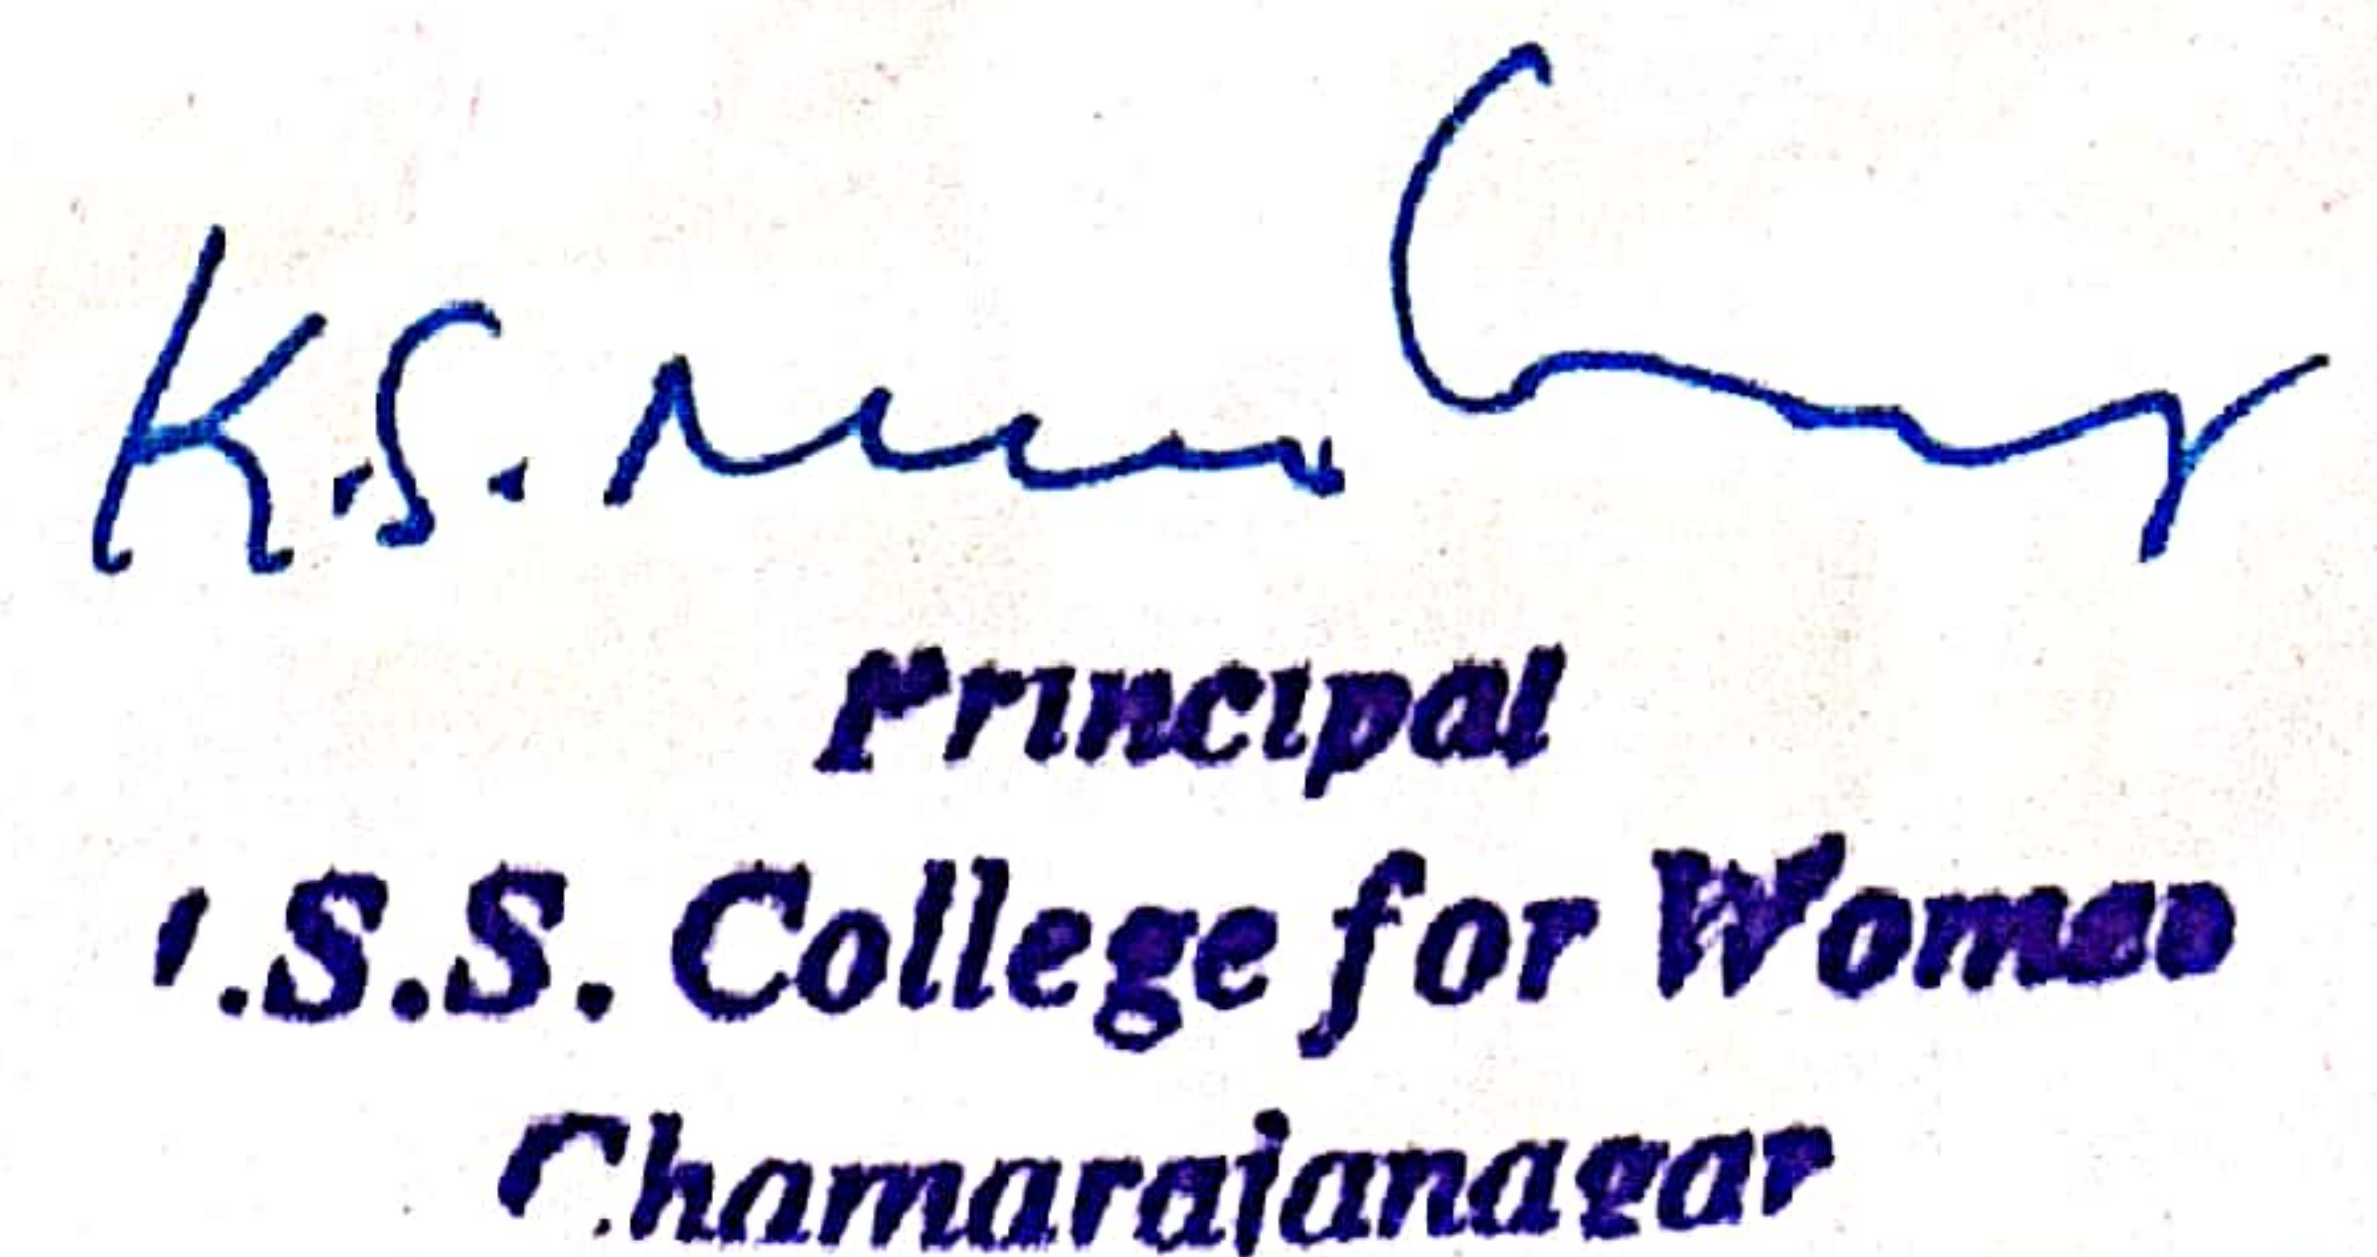 K.S.
Principal
.S.S. College for Women
Chamarajanagar